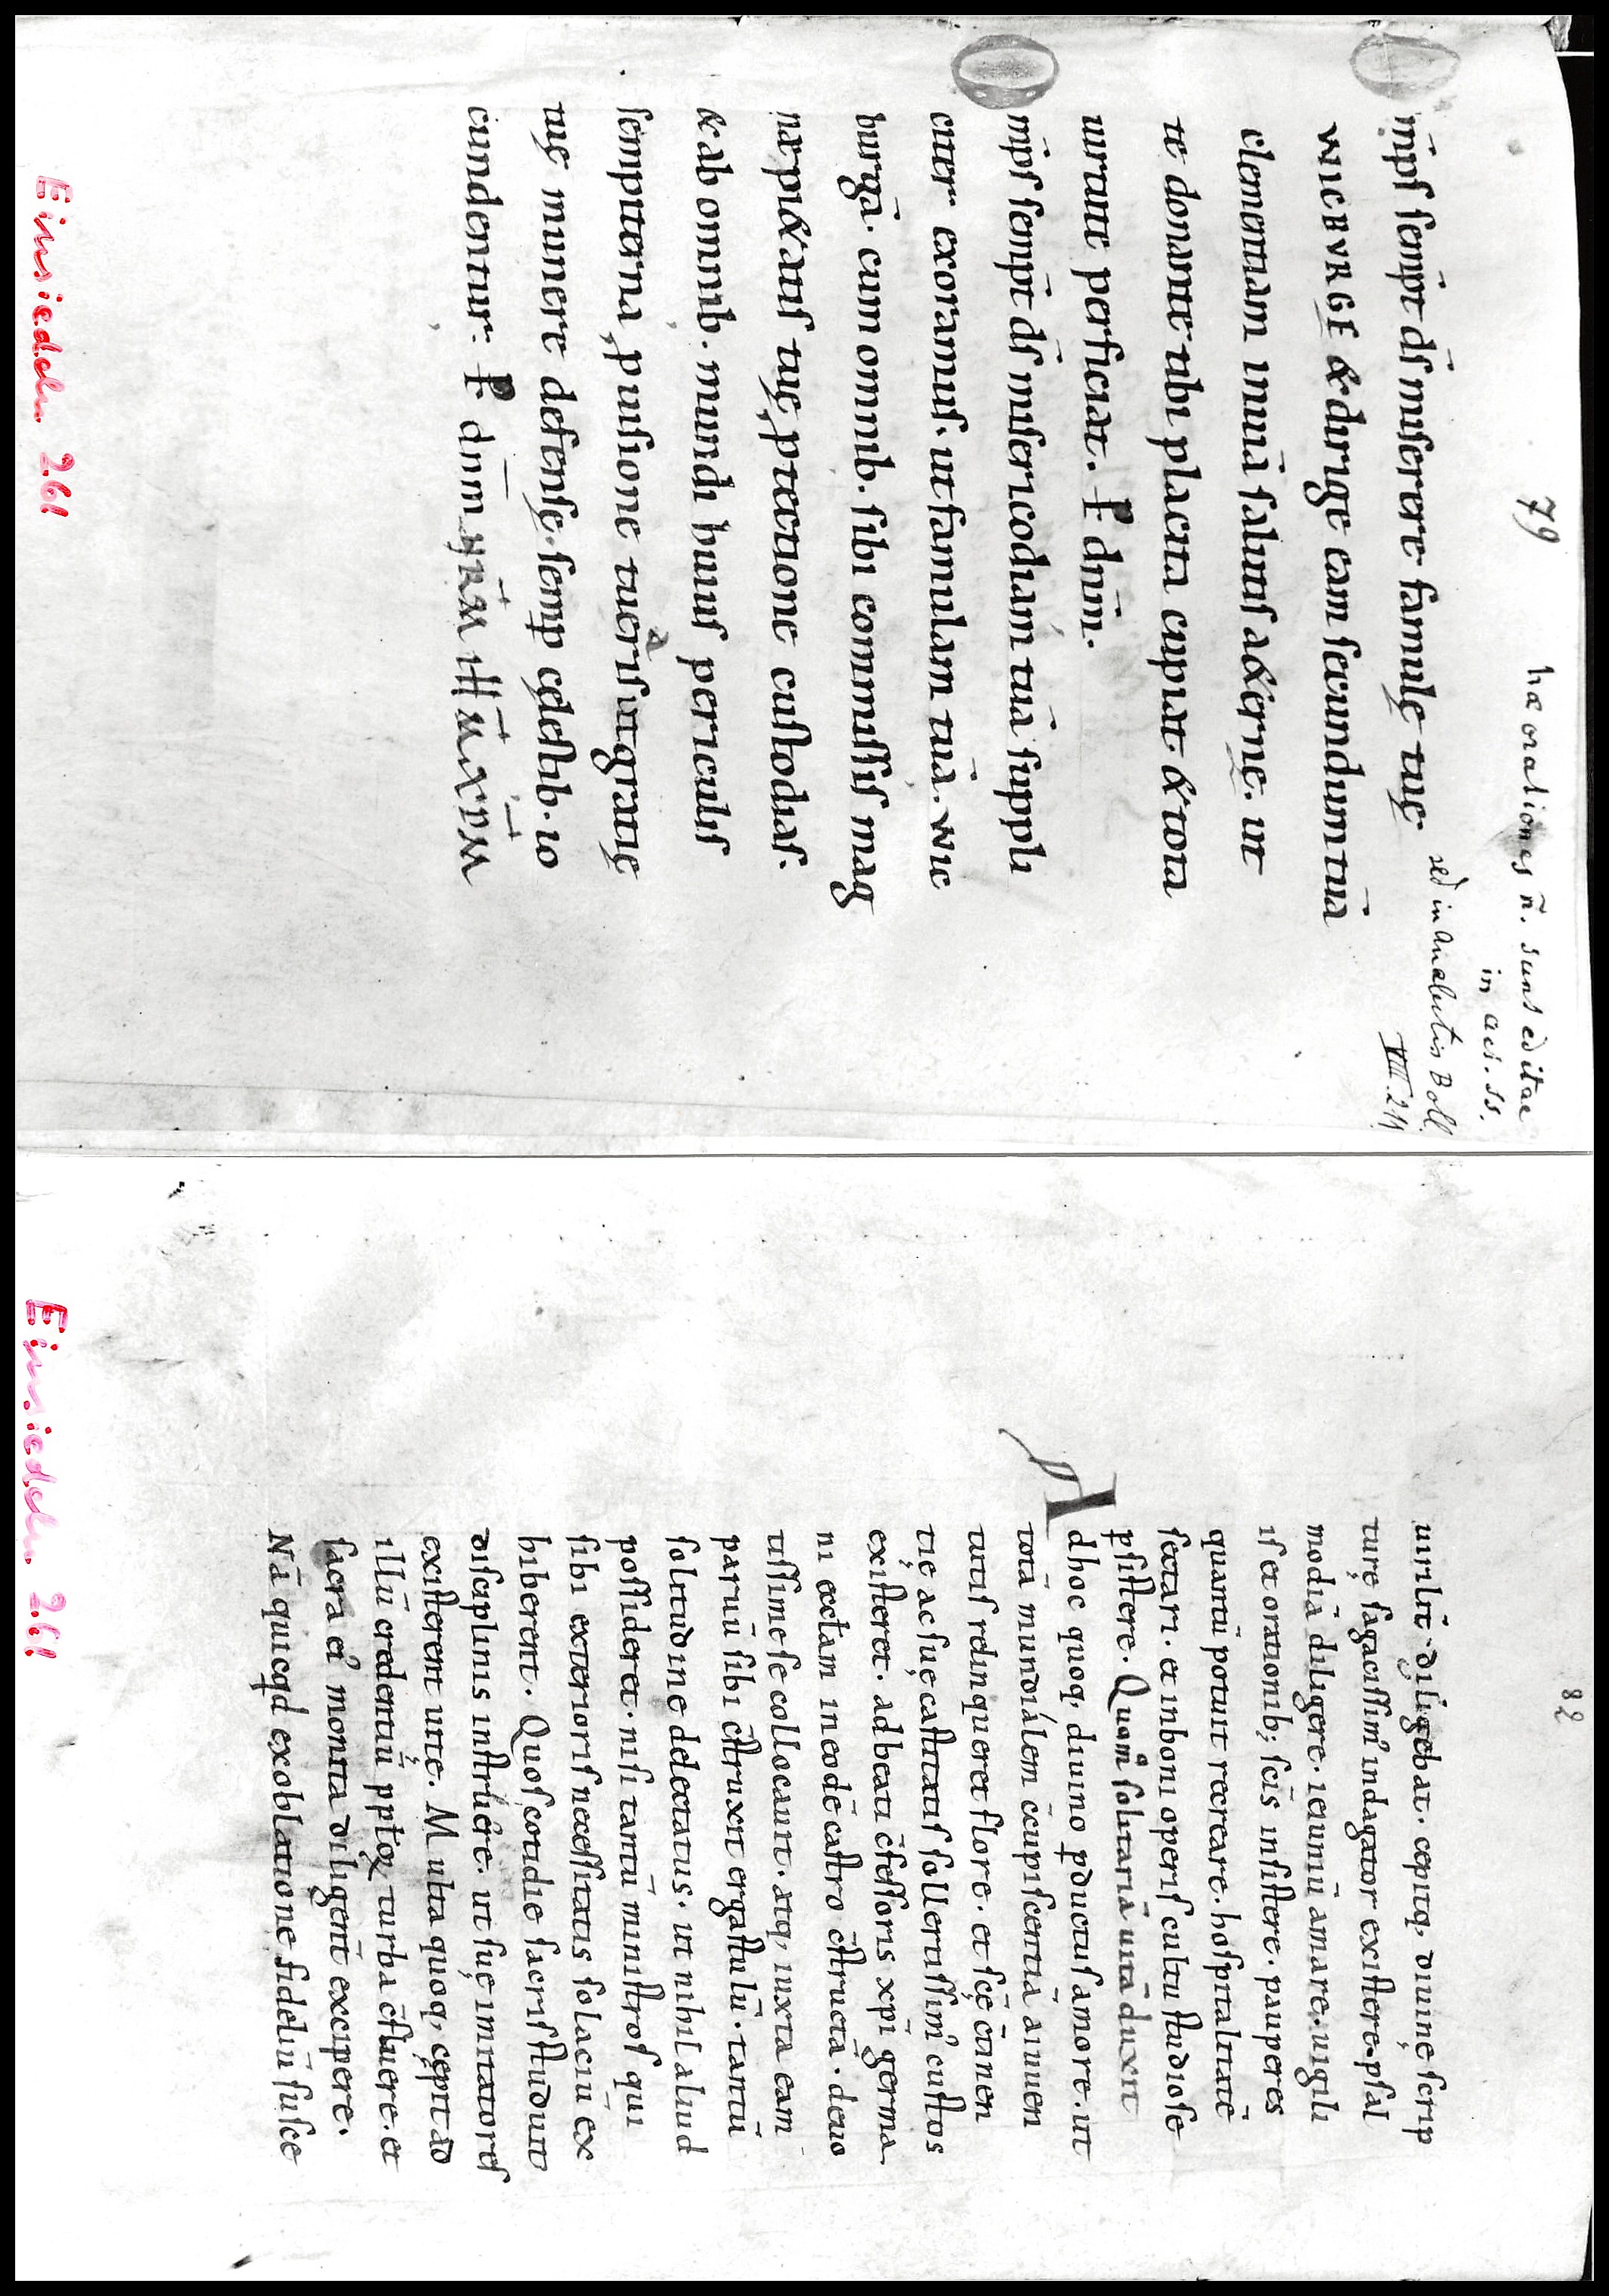 79
hæ orationes n̄. sunt editae
in act. SS.
sed in Analectis Boll.
VIII. 211
Omp̄ſ ſemp̄t dſ̄ miſerere famulę tuę
WICBVRGE & dirige eam ſecundum tuā
clementiam in uiā ſalutiſ a&ernę. ut
te donante tibi placita cupiat & tota
uirtute perficiat. ꝑ dnm̄.
Omp̄ſ ſemp̄t dſ̄ miſericodiam tuā ſuppli
citer exoramuſ. ut famulam tuā. WIC
burgā. cum omnib. ſibi commiſſiſ mag
næ pi&atiſ tuę ꝓtectione cuſtodiaſ.
& ab omnib. mundi huiuſ periculiſ
ſempiterna ꝓuiſione tueriſ. ut gratię
tuę munere defenſę. ſemꝑ cęleſtib. io
cundentur. ꝑ dnm̄
Einsiedeln 261
82
uirilit̄. diligebat. cepitq, diuinę ſcrip
turę ſagaciſſim' indagator exiſtere. pſal
modiā diligere. ieiuniū amare. uigili
iſ et orationib; ſcīſ inſiſtere. pauperes
quantū potuit recreare. hoſpitalitatē
ſectari. et in boni operiſ cultu ſtudioſe
ꝑſiſtere. Quom̊ ſolitariā uitā duxit
Adhoc quoq, diuino ꝑductuſ amore. ut
totā mundiálem c̄cupiſcentiā a iuuen
tutiſ relinqueret flore. et ſcę̄ c̄tinen
tię ac ſuę caſtitatiſ ſollertiſſim' cuſtos
exiſteret. ad beati c̄feſſoris xp̄i germa
ni ecclam in eodē caſtro c̄ſtructā. deuo
tiſſime ſe collocauit. atq, iuxta eam
paruū ſibi c̄ſtruxit ergaſtulū. tantū
ſolitudine delectatus. ut nihil aliud
poſſideret. niſi tantū miniſtroſ qui
ſibi exterioriſ neceſſitatis ſolaciū ex
hiberent. Quoſ cotidie ſacriſ ſtuduit
diſciplinis inſtruere. ut ſuę imitatoreſ
exiſterent uitę. Multa quoq, cępit ad
illū credentiū ꝓpt̄oꝝ turba c̄fluere. et
ſacra ei' monita diligent̄ excipere.
Nā quicqd exoblatione fideliū ſuſce
Einsiedeln 261